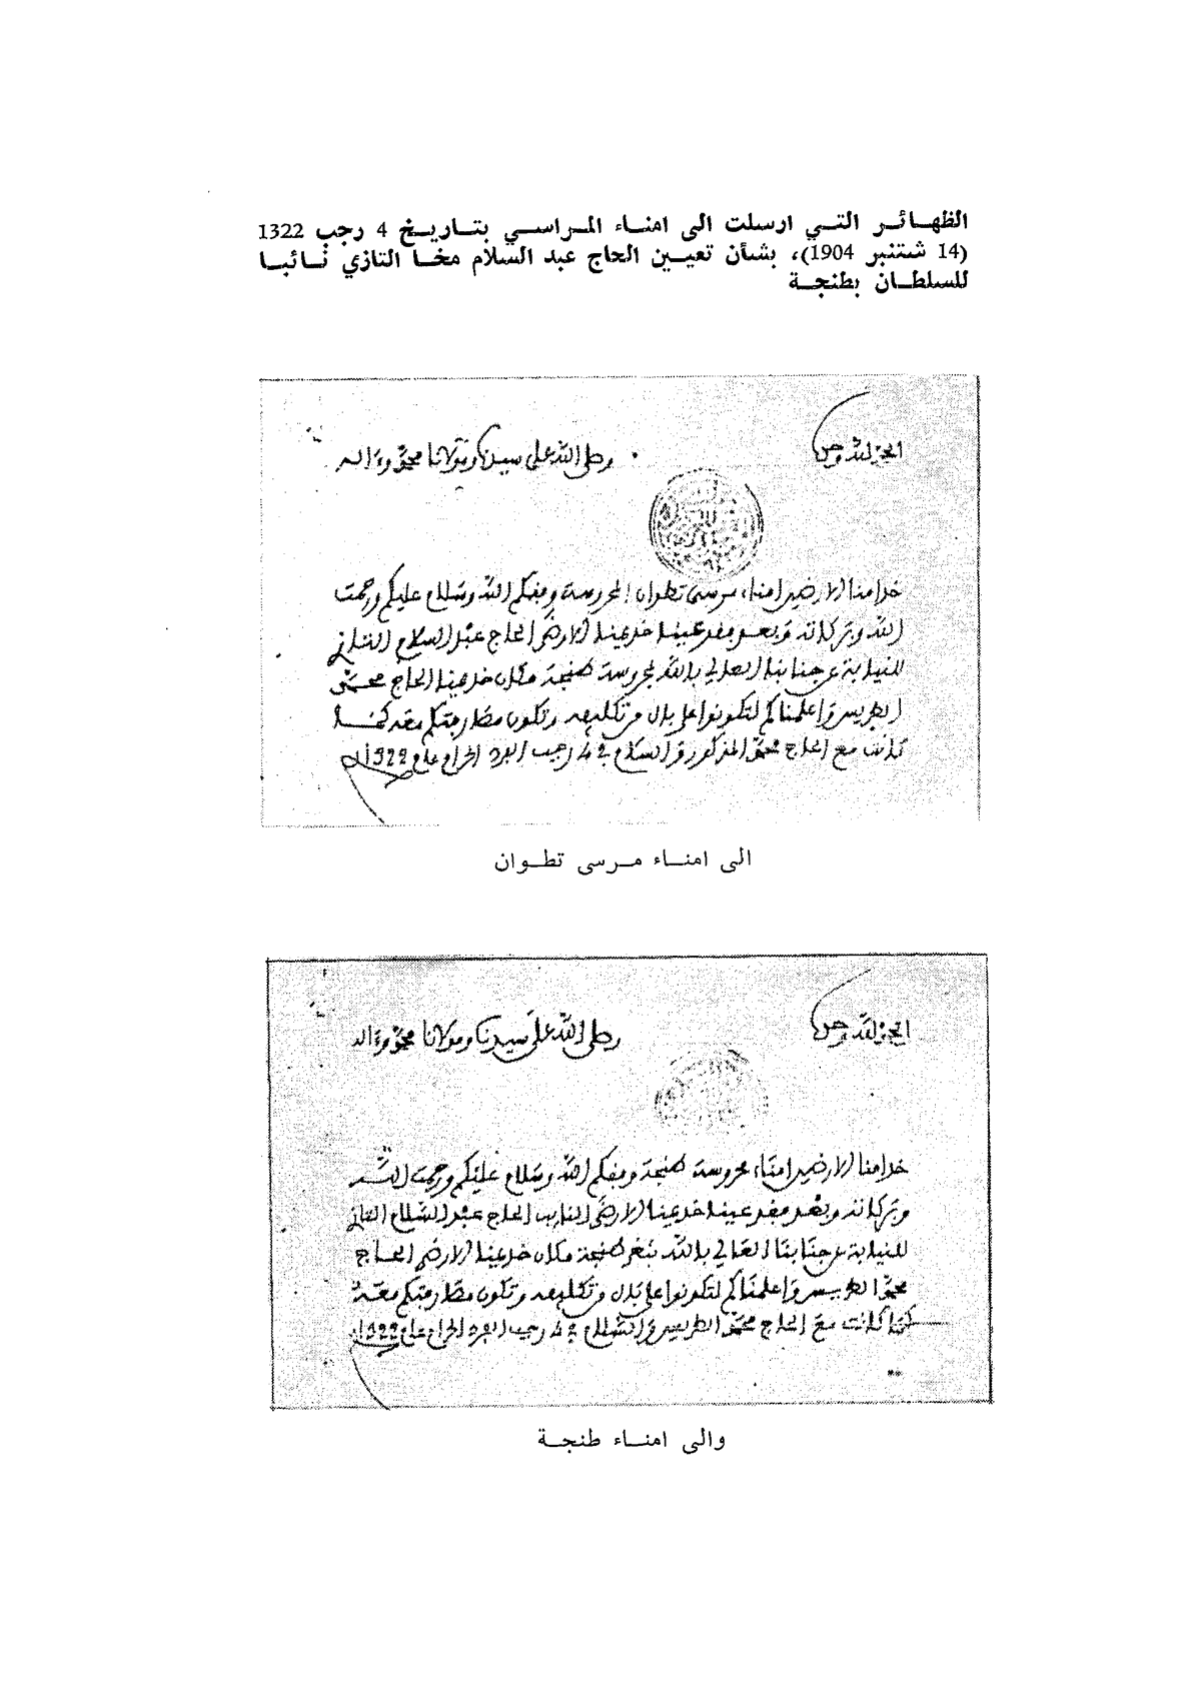 الظهـائـر التـي ارسلت الى امنـاء المـراسـي بتـاريـخ 4 رجب 1322
(14 شتنبر 1904)، بشأن تعيـين الحاج عبد السلام مخـا التازي نـائبـا
للسلطـان بطنجـة
الحمد لله وحده
وصلى الله على سيدنا ومولانا محمد وءاله
خدامنا الارضين امناء مرسى تطوان المحروسة وفقكم الله وسلام عليكم ورحمت
الله وبركاته وبعد فقد عينا خديمنا الارضى الحاج عبد السلام التازي
للنيابة عن جنابنا العالي بالله بمحروسة طنجة مكان خديمنا الحاج محمد
الطريس واعلمناكم لتكونوا على بال من تكليفه وتكون مفاوضتكم معه كما
كانت مع الحاج محمد المذكور والسلام في 4 رجب الفرد الحرام عام 1322
الى امنـاء مـرسى تطـوان
الحمد لله وحده
وصلى الله على سيدنا ومولانا محمد وءاله
خدامنا الارضين امناء محروسة طنجة وفقكم الله وسلام عليكم ورحمت الله
وبركاته وبعد فقد عينا خديمنا الارضى النايب الحاج عبد السلام التازي
للنيابة عن جنابنا العالي بالله بثغر طنجة مكان خديمنا الارضى الحاج
محمد الطريس واعلمناكم لتكونوا على بال من تكليفه وتكون مفاوضتكم معه
كما كانت مع الحاج محمد الطريس والسلام في 4 رجب الفرد الحرام عام 1322
والى امنـاء طنجـة